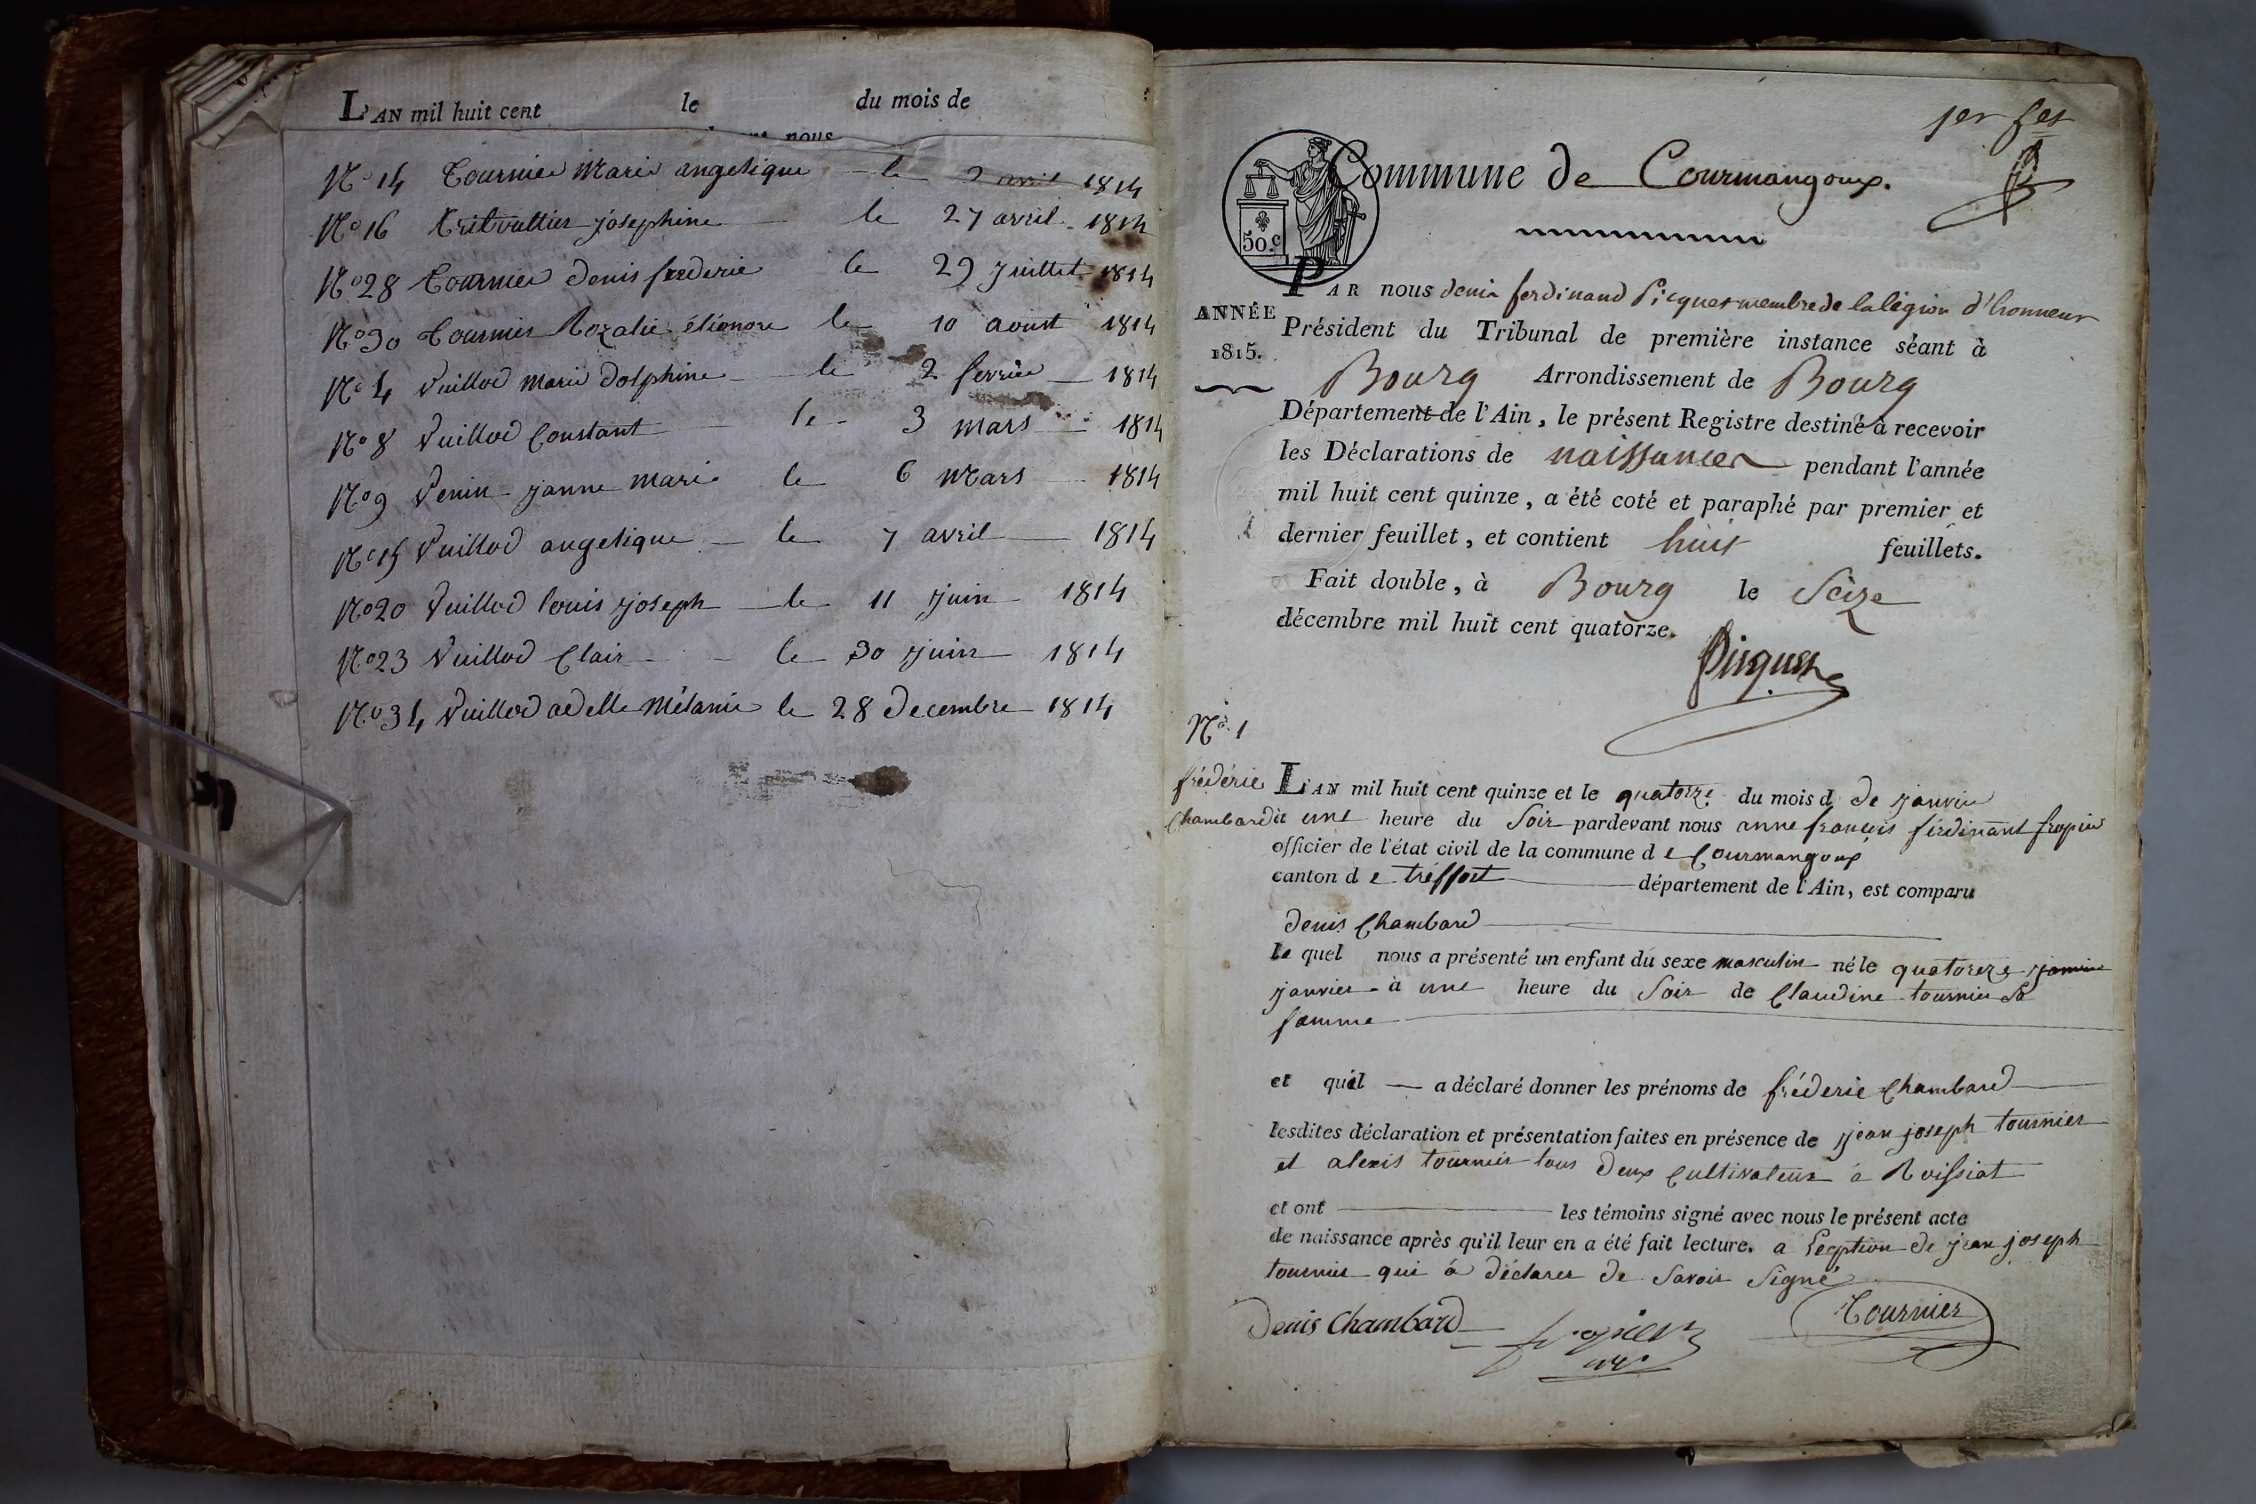 L'AN mil huit cent le du mois de
nous
No 14 Tournier Marie angelique le 2 avril 1814
No 16 Tritvuttier josephine le 27 avril 1814
No 28 Tournier denis frederic le 29 Juillet 1814
No 30 Tournier Rozalie éléonore le 10 aoust 1814
No 4 Vuillod marie dolphine le 2 fevrier 1814
No 8 Vuillod Constant le 3 mars 1814
No 9 Venin janne marie le 6 mars 1814
No 15 Vuillod angelique le 7 avril 1814
No 20 Vuillod louis joseph le 11 juin 1814
No 23 Vuillod Clair le 30 juin 1814
No 34 Vuillod adelle Mélanie le 28 decembre 1814
1er fet
Commune de Courmangoux.
50.c
PAR nous denis ferdinand Picquet membre de la légion d'honneur
ANNÉE
1815.
Président du Tribunal de première instance séant à
Bourg Arrondissement de Bourg
Département de l'Ain, le présent Registre destiné à recevoir
les Déclarations de naissances pendant l'année
mil huit cent quinze, a été coté et paraphé par premier et
dernier feuillet, et contient huit feuillets.
Fait double, à Bourg le Seize
décembre mil huit cent quatorze.
Picquet
No 1
fréderic
Chambard
L'AN mil huit cent quinze et le quatorze du mois d de janvier
à une heure du Soir pardevant nous anne françois ferdinant fropier
officier de l'état civil de la commune d e Courmangoux
canton d e tréffort département de l'Ain, est comparu
denis Chambard
le quel nous a présenté un enfant du sexe masculin né le quatorze janvier
janvier à une heure du Soir de Claudine tournier Sa
famme
et qu'il a déclaré donner les prénoms de fréderic Chambard
lesdites déclaration et présentation faites en présence de jean joseph tournier
et alexis tournier tous deux Cultivateur à Roissiat
et ont les témoins signé avec nous le présent acte
de naissance après qu'il leur en a été fait lecture. a l'ecption de jean joseph
tournier qui à déclarer de Savoir Signé
Denis Chambard fropier Tournier